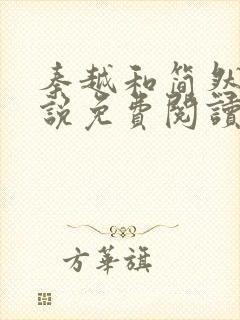 秦越和简然
說免費閱讀
方華旗